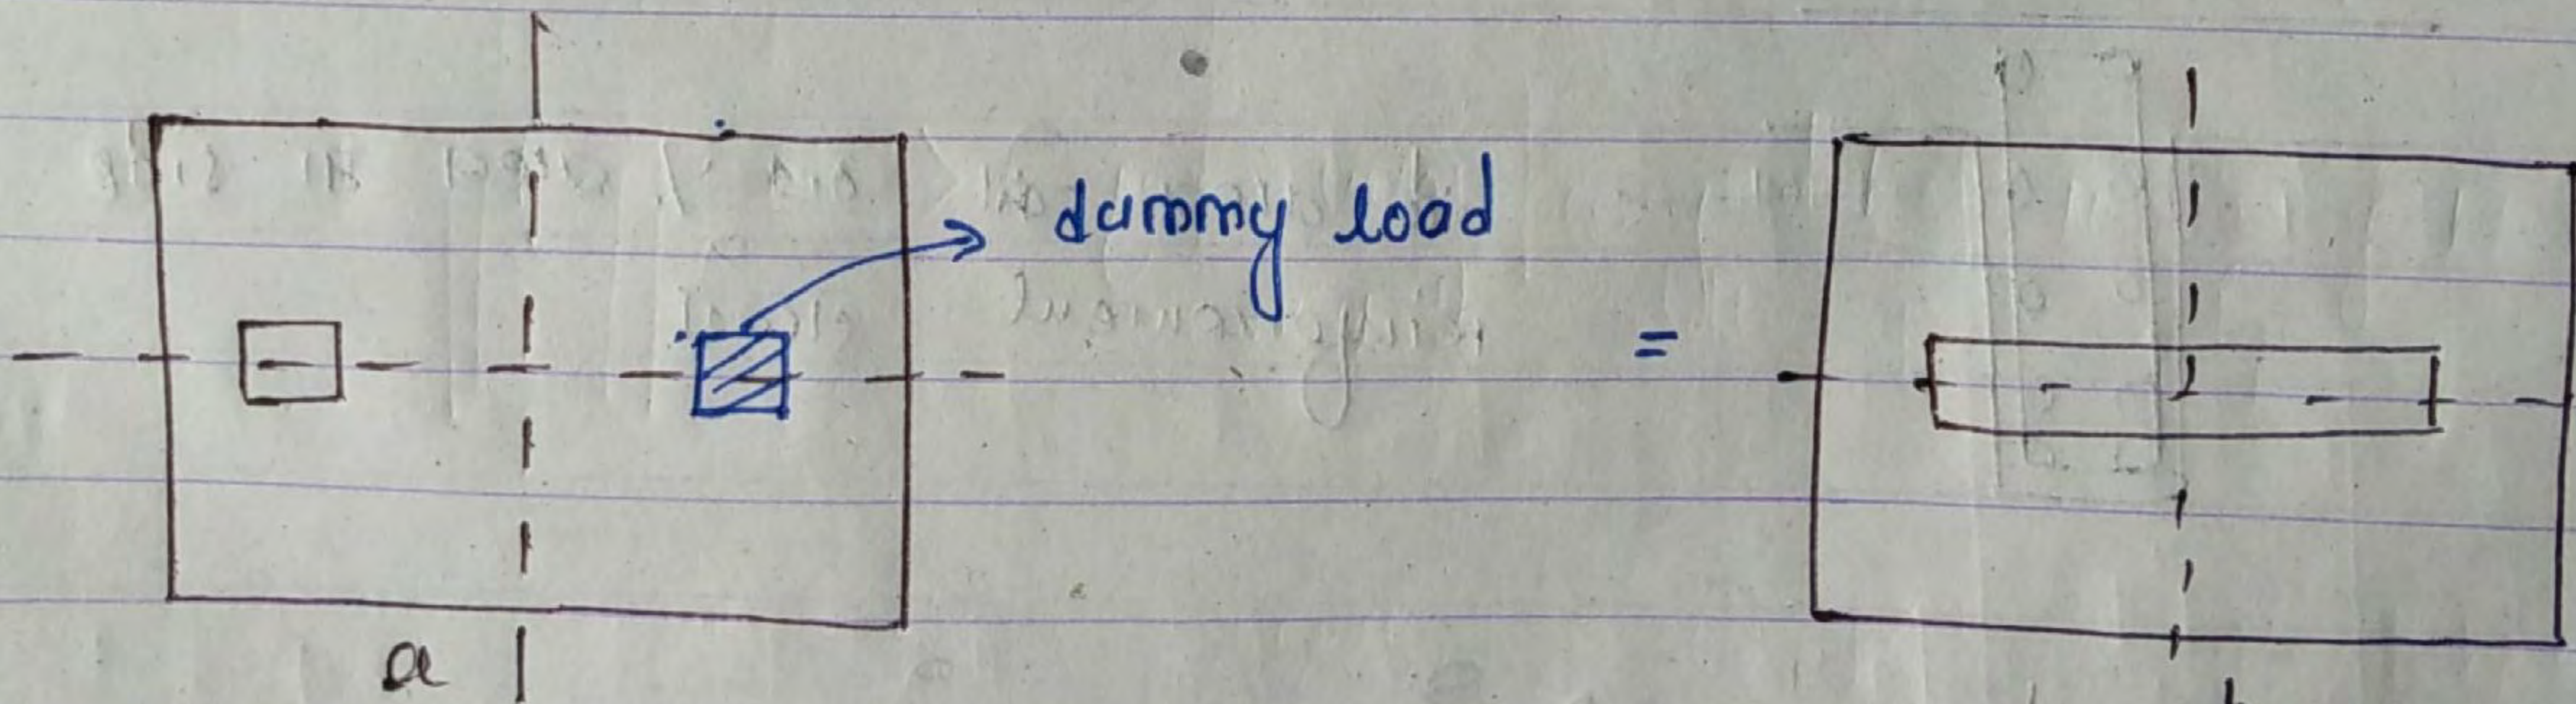 dummy load
=
a